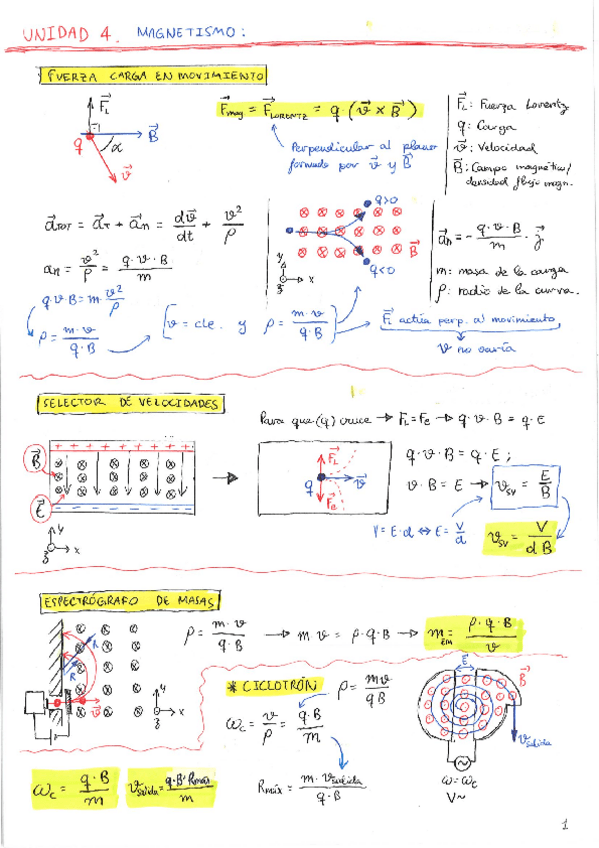 UNIDAD 4. MAGNETISMO:
FUERZA CARGA EN MOVIMIENTO
F⃗L
q α B⃗
v⃗
F⃗mag = F⃗LORENTZ = q·(v⃗ x B⃗)
Perpendicular al plano
formado por v⃗ y B⃗
F⃗L: Fuerza Lorentz
q: Carga
v⃗: Velocidad
B⃗: Campo magnético/
densidad flujo magn.
a⃗TOT = a⃗T + a⃗n = dv⃗/dt + v²/ρ
an = v²/ρ = q·v·B/m
q·v·B = m·v²/ρ
ρ = m·v/q·B
v = cte. y ρ = m·v/q·B
q>0
B⃗
q<0
y
z x
a⃗n = - q·v·B/m · j⃗
m: masa de la carga
ρ: radio de la curva.
F⃗L actúa perp. al movimiento
v no varía
SELECTOR DE VELOCIDADES
Para que (q) cruce → FL = Fe → q·v·B = q·E
B⃗
E⃗
y
z x
F⃗L
q v⃗
F⃗e
q·v·B = q·E;
v·B = E → vsv = E/B
V = E·d ↔ E = V/d
vsv = V/dB
ESPECTRÓGRAFO DE MASAS
R
R
v⃗
y
z x
ρ = m·v/q·B → m v = ρ·q·B → mEM = ρ·q·B/v
* CICLOTRÓN
ρ = mv/qB
ωc = v/ρ = q·B/m
E⃗
B⃗
v⃗salida
ω = ωc
V~
ωc = q·B/m
vsalida = q·B·Rmáx/m
Rmáx = m·vsalida/q·B
1